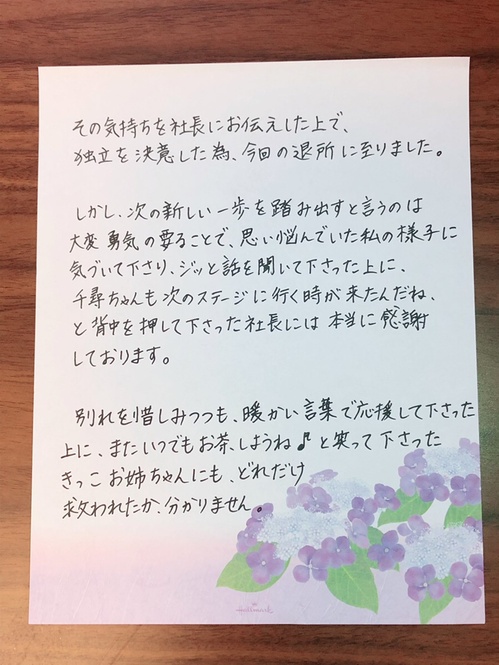 その気持ちを社長にお伝えした上で、
独立を決意した為、今回の退所に至りました。
しかし、次の新しい一歩を踏み出すと言うのは
大変勇気の要ることで、思い悩んでいた私の様子に
気づいて下さり、ジッと話を聞いて下さった上に、
千尋ちゃんも次のステージに行く時が来たんだね、
と背中を押して下さった社長には本当に感謝
しております。
別れを惜しみつつも、暖かい言葉で応援して下さった
上に、またいつでもお茶しようね♪と笑って下さった
きっこお姉ちゃんにも、どれだけ
救われたか、分かりません。
Hallmark